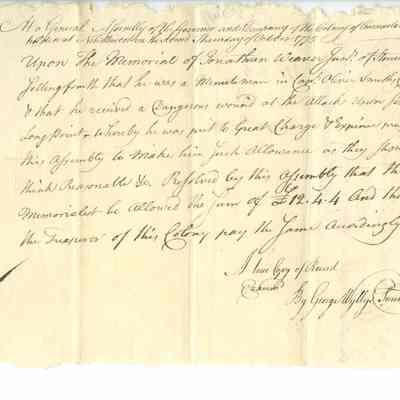 At a General Assembly of the Governor and Company of the Colony of Connecticut
holden at New Haven on the Second Thursday of October 1775
Upon The Memorial of Jonathan Weaver Junr. of
Setting forth that he was a Minuteman in Capt. Oliver Smiths
& that he received a Dangerous wound at the Attack upon
Long Point - whereby he was put to Great Charge & Expence
this Assembly to Make him Such Allowance as they
think Reasonable &c. Resolved by this Assembly that the
Memorialist be Allowed the Sum of £12.4.4 And the
the Treasurer of this Colony pay the Same Accordingly
A true Copy of Record
Examd.
By George Wyllys